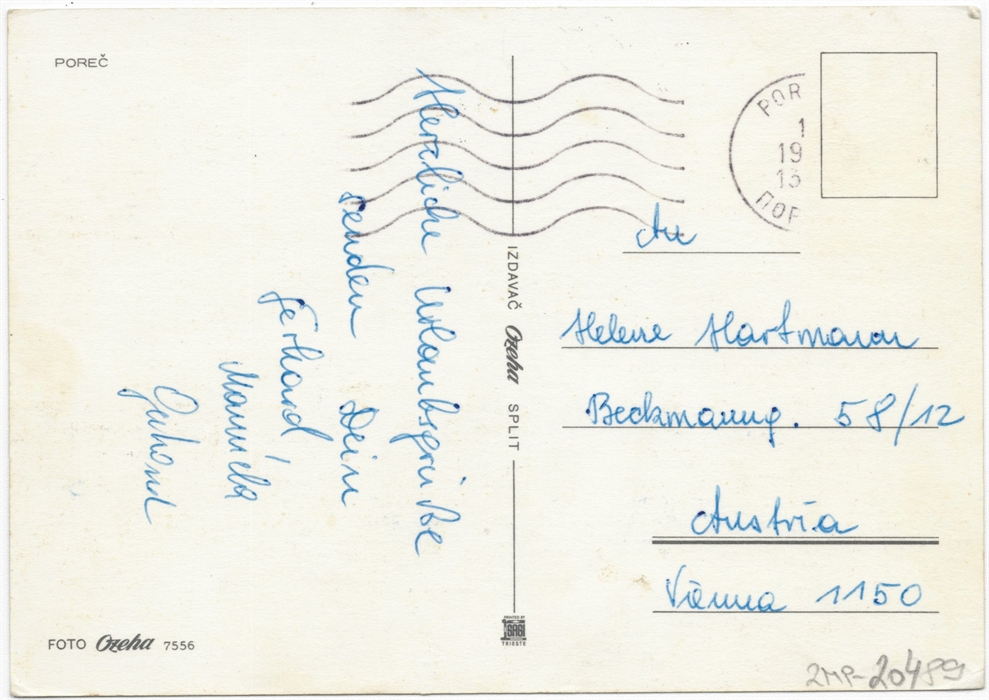 POREČ
Herzliche Urlaubsgrüße
senden Dein
Gerhard
Manuéla
POR
1
19
13
ПОР
An
Helene Hartmann
Beckmanng. 58/12
Austria
Vienna 1150
IZDAVAČ Ozeha SPLIT
PRINTED BY
TRIESTE
FOTO Ozeha 7556
2MP-20489